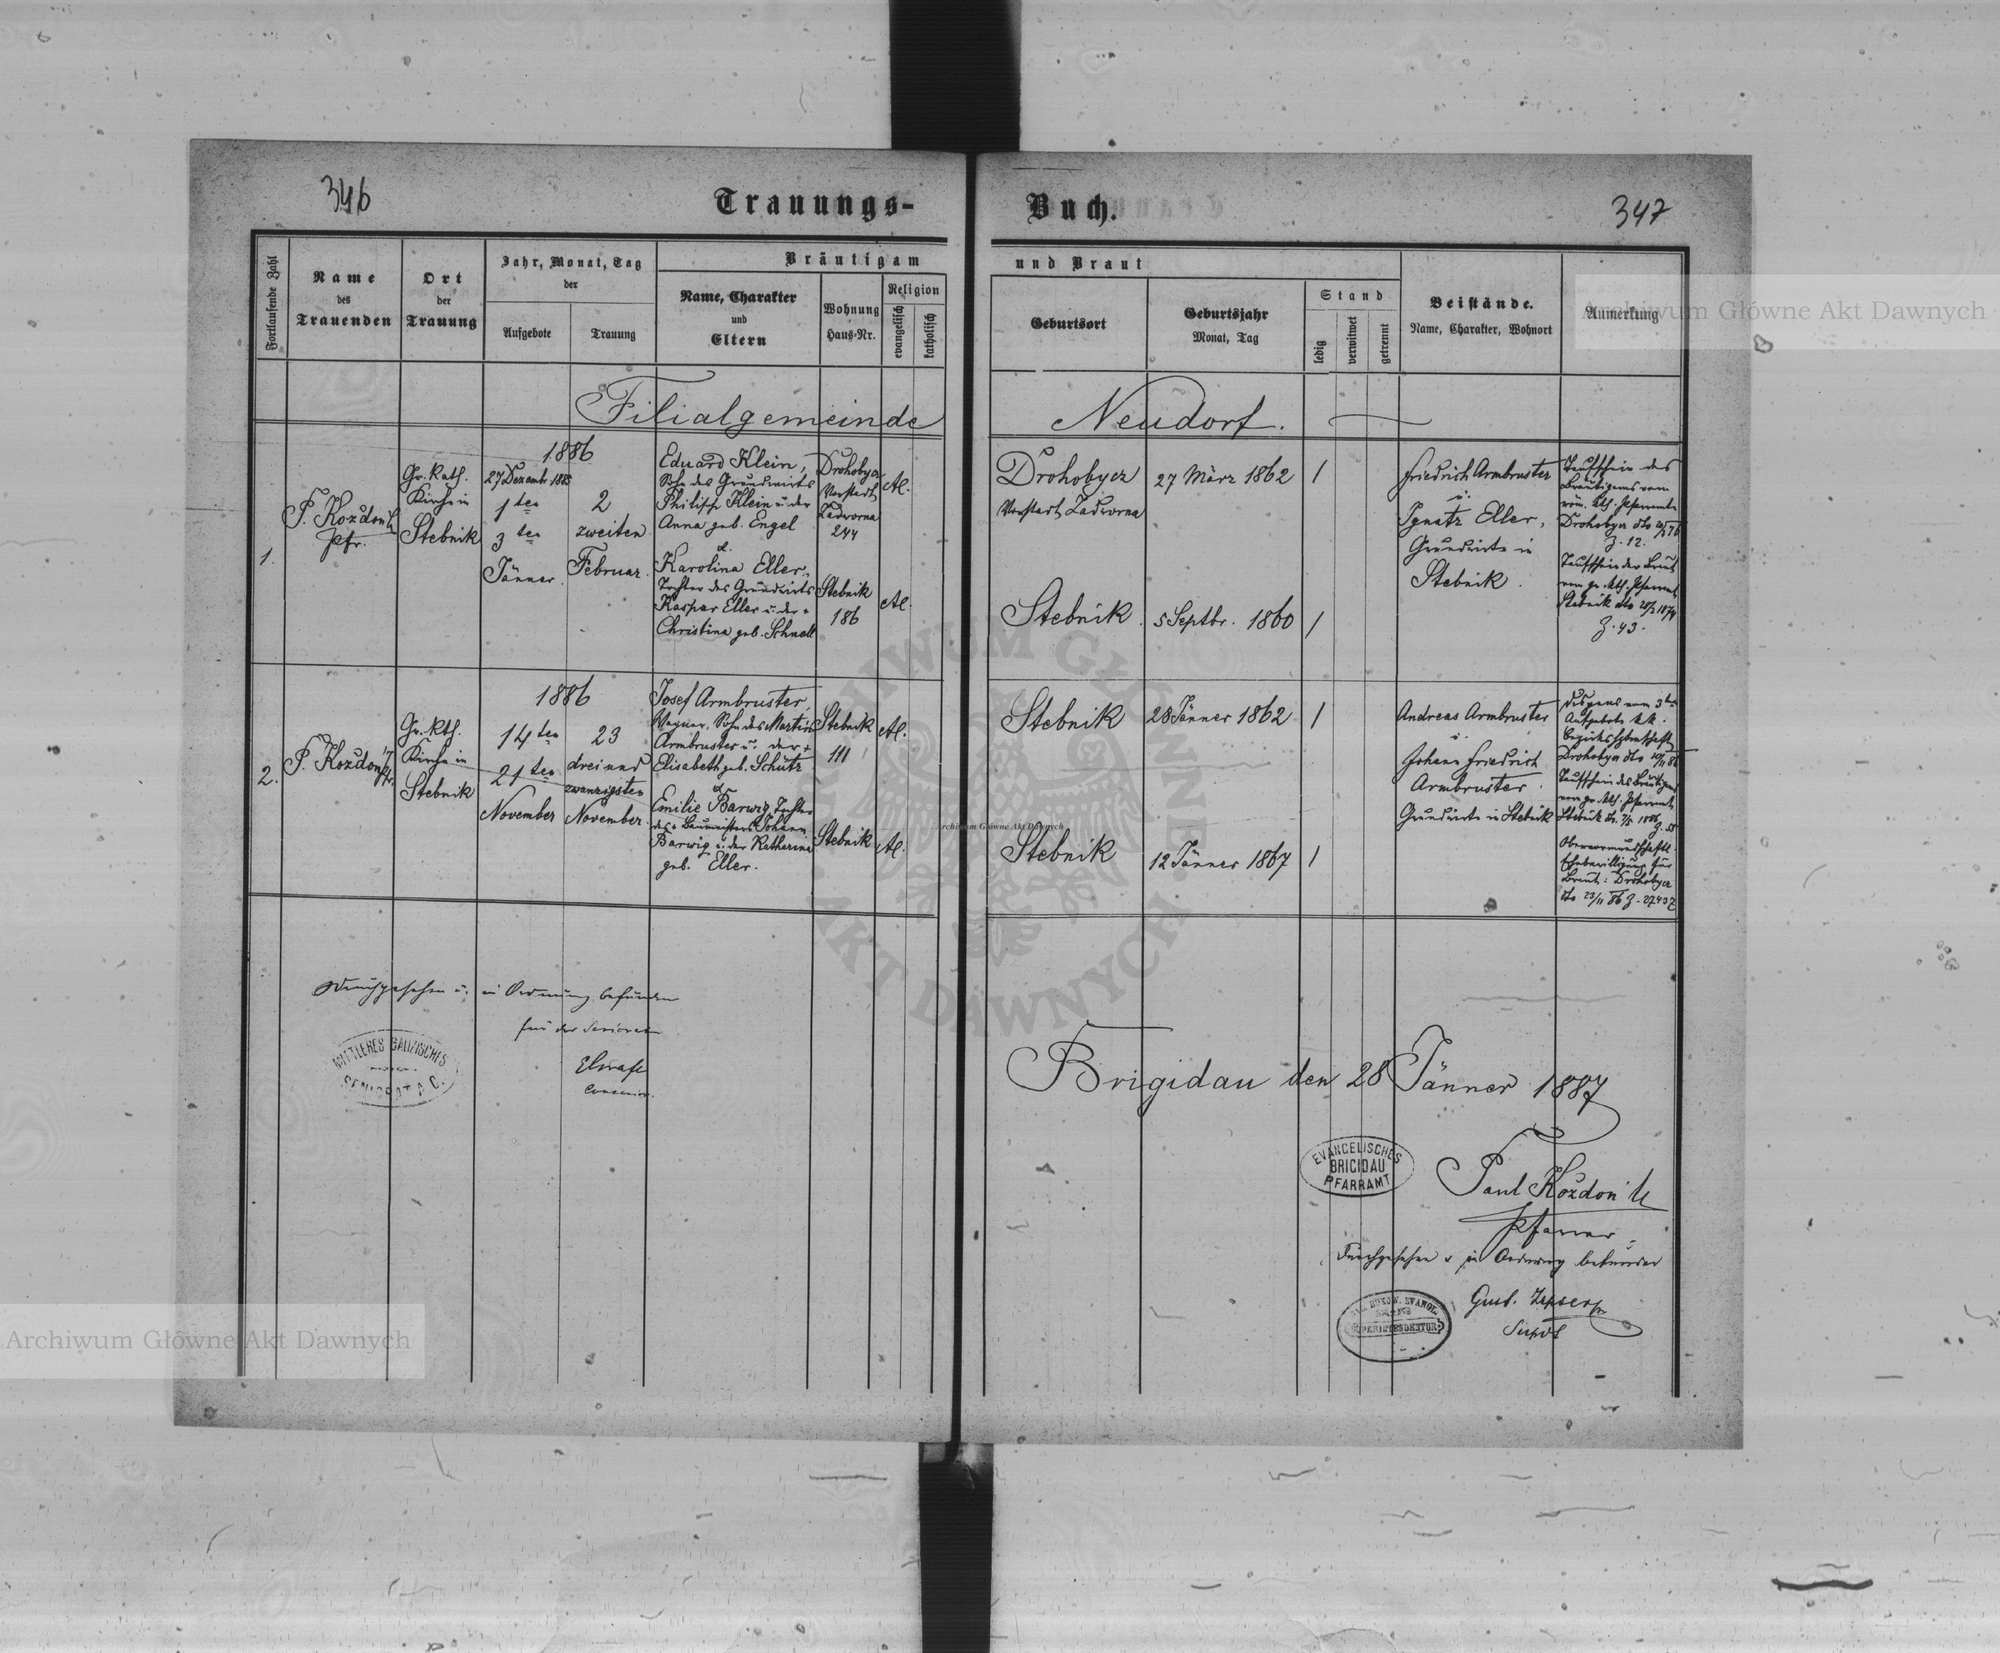 346
Trauungs-
Buch.
347
Fortlaufende Zahl
Name
des
Trauenden
Ort
der
Trauung
Jahr, Monat, Tag
der
Aufgebote
Trauung
Bräutigam
Name, Charakter
und
Eltern
Wohnung
Haus-Nr.
Religion
evangelisch
katholisch
und Braut
Geburtsort
Geburtsjahr
Monat, Tag
Stand
ledig
verwitwet
getrennt
Beistände.
Name, Charakter, Wohnort
Anmerkung
Filialgemeinde
Neudorf.
1.
P. Kozdon
Pfr.
Gr. Kath.
Kirche in
Stebnik
1886
27 Dezember 1885
1 ten
3 ten
Jänner.
2
zweiten
Februar.
Eduard Klein,
Sohn des Grundwirts
Philipp Klein u. der
Anna geb. Engel
&
Karolina Eller,
Tochter des Grundwirts
Kaspar Eller u. der +
Christina geb. Schnell
Drohobycz
Vorstadt
Zadworna
244
Stebnik
186
AC.
AC.
Drohobycz
Vorstadt Zadworna
Stebnik.
27 März 1862
5 Septbr. 1860
/
/
Friedrich Armbruster
u.
Ignatz Eller,
Grundwirte in
Stebnik.
Taufschein des
Bräutigams vom
röm. kth. Pfarramte
Drohobycz dto
Z. 12.
Taufschein der Braut
vom gr. kth. Pfarramt
Stebnik dto 28/2 1874
Z. 43.
2.
P. Kozdon
Pfr.
Gr. Kth.
Kirche in
Stebnik
1886
14 ten
21 ten
November
23
drei und
zwanzigsten
November.
Josef Armbruster,
Wagner, Sohn des Martin
Armbruster u. der +
Elisabeth geb. Schütz
&
Emilie Barwig, Tochter
des + Baumeisters Johann
Barwig u. der Katharina
geb. Eller.
Stebnik
111
Stebnik
AC.
AC.
Stebnik
Stebnik
28 Jänner 1862
12 Jänner 1867
/
/
Andreas Armbruster
u.
Johann Friedrich
Armbruster.
Grundwirte in Stebnik
Dispens vom 3ten
Aufgebote kk.
Bezirkshptmschaft
Drohobycz dto
Taufschein des Bräutigams
vom gr. kth. Pfarramt
Stebnik 1886
Z. 58
Obervormundschaftl.
Ehebewilligung für
Braut: Drohobycz
dto 23/11 86 Z. 27437
Durchgesehen u. in Ordnung befunden
für das Seniorat
Consenior.
MITTLERES GALIZISCHES
SENIORAT A. C.
Brigidau den 28 Jänner 1887
EVANGELISCHES
BRIGIDAU
PFARRAMT
Paul Kozdon
Pfarrer.
Durchgesehen u in Ordnung befunden
Gust. Zipser
Supdt
BUKOW. EVANG.
SUPERINTENDENTUR
Archiwum Główne Akt Dawnych
Archiwum Główne Akt Dawnych
Archiwum Główne Akt Dawnych
ARCHIWUM GŁÓWNE
AKT DAWNYCH